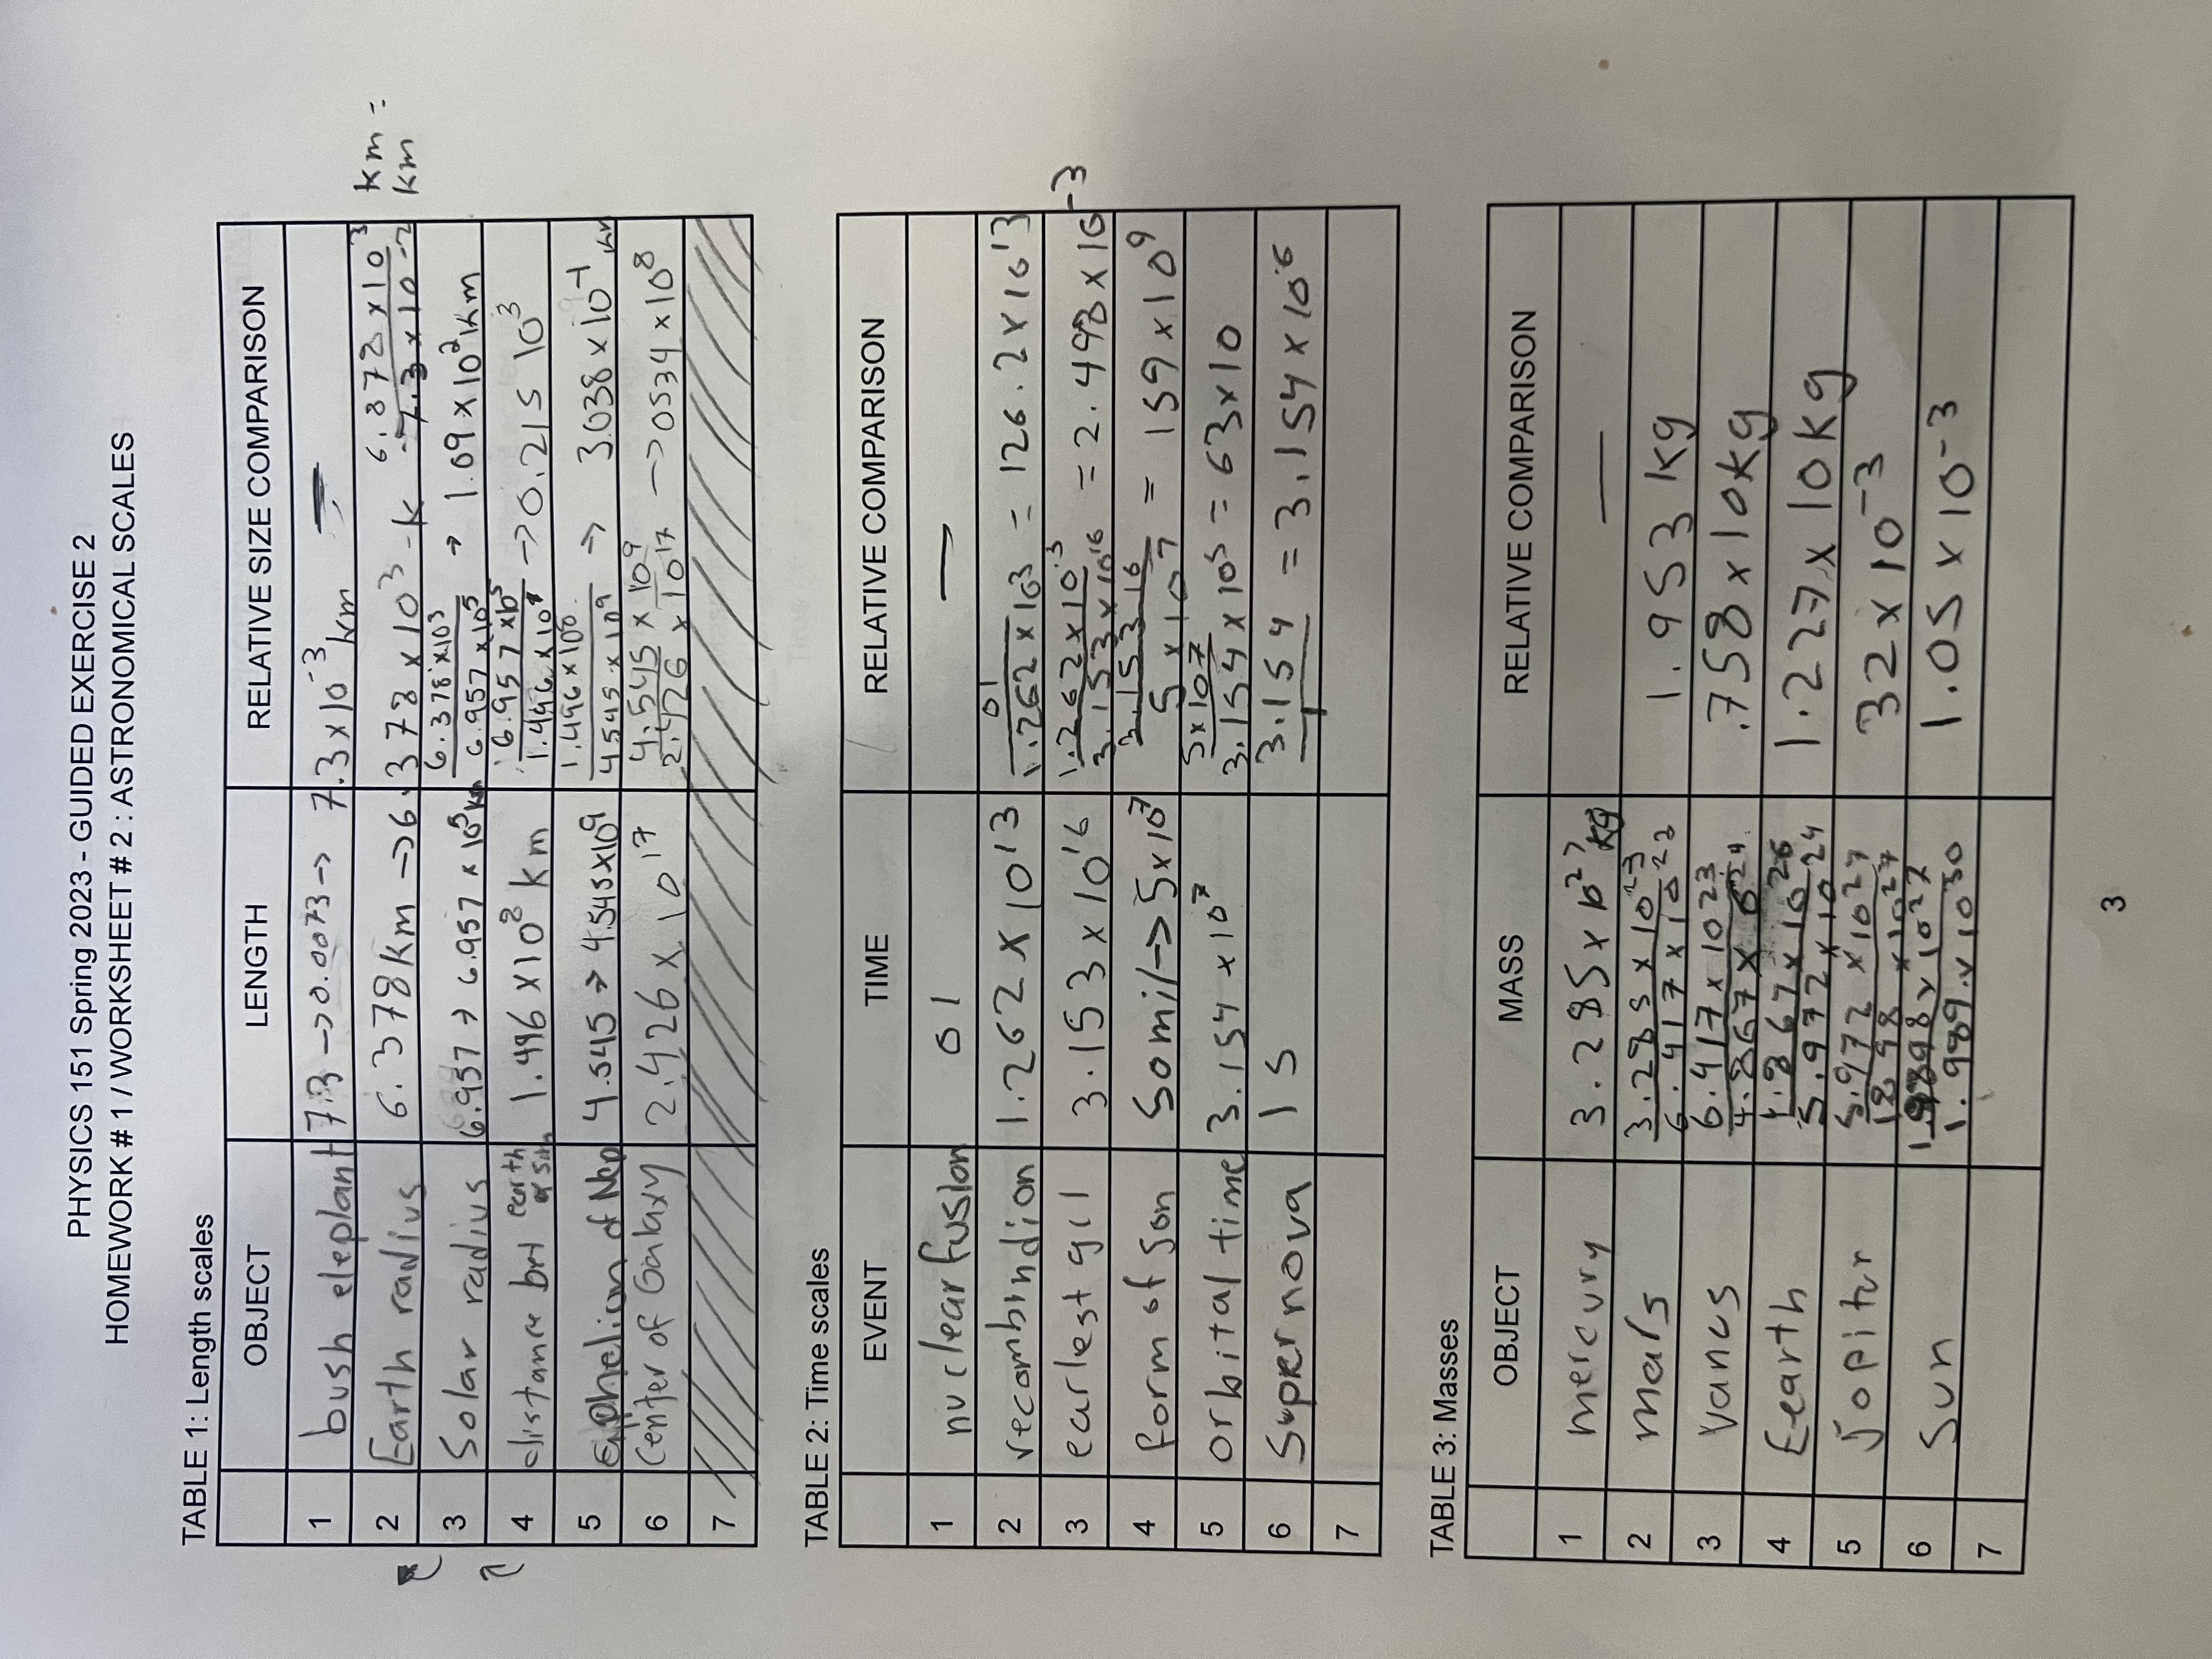 PHYSICS 151 Spring 2023 - GUIDED EXERCISE 2
HOMEWORK # 1 / WORKSHEET # 2 : ASTRONOMICAL SCALES
TABLE 1: Length scales
OBJECT LENGTH RELATIVE SIZE COMPARISON
1 bush eleplant 7.3 → 0.0073 → 7.3 x 10^-3 km —
2 Earth radius 6.378 Km → 6.378 x 10^3 - K 6.872 x 10^3 / 7.3 x 10^-2 km = km
3 Solar radius 6.957 → 6.957 x 10^5 km 6.378 x 10^3 / 6.957 x 10^5 → 1.09 x 10^2 Km
4 distance bet earth & sun 1.496 x 10^8 km 6.957 x 10^5 / 1.496 x 10^8 → 0.215 10^3
5 of Nep 4.545 → 4.545 x 10^9 1.496 x 10^8 / 4545 x 10^9 → 3.038 x 10^-1 km
6 Center of Galaxy 2.426 x 10^17 4.545 x 10^9 / 2.426 x 10^17 → 0534 x 10^8
7
TABLE 2: Time scales
EVENT TIME RELATIVE COMPARISON
1 nuclear fusion 01 —
2 recombindion 1.262 x 10^13 01 / 1.262 x 10^3 = 126.2 x 10^13
3 earlest gcl 3.153 x 10^16 1.262 x 10^13 / 3.153 x 10^16 = 2.498 x 10^-3
4 form of son 50 mil → 5 x 10^7 3.153 16 / 5 x 10^7 = 159 x 10^9
5 orbital time 3.154 x 10^7 5 x 107 / 3.154 x 10^5 = 63 x 10
6 Supernova 1 s 3.154 / 1 = 3.154 x 10^6
7
TABLE 3: Masses
OBJECT MASS RELATIVE COMPARISON
1 mercury 3.285 x 10^27 kg —
2 mars 3.285 x 10^23 / 6.417 x 10^23 1.953 kg
3 vancs 6.417 x 10 23 / 4.867 x 6^24 .758 x 10 kg
4 Eearth 4.867 x 10^26 / 5.972 x 10^24 1.227 x 10 kg
5 Jopiter 5.972 x 10^27 / 1898 x 10^27 32 x 10^-3
6 Sun x 10^27 / 1.989 x 10^30 1.05 x 10^-3
7
3